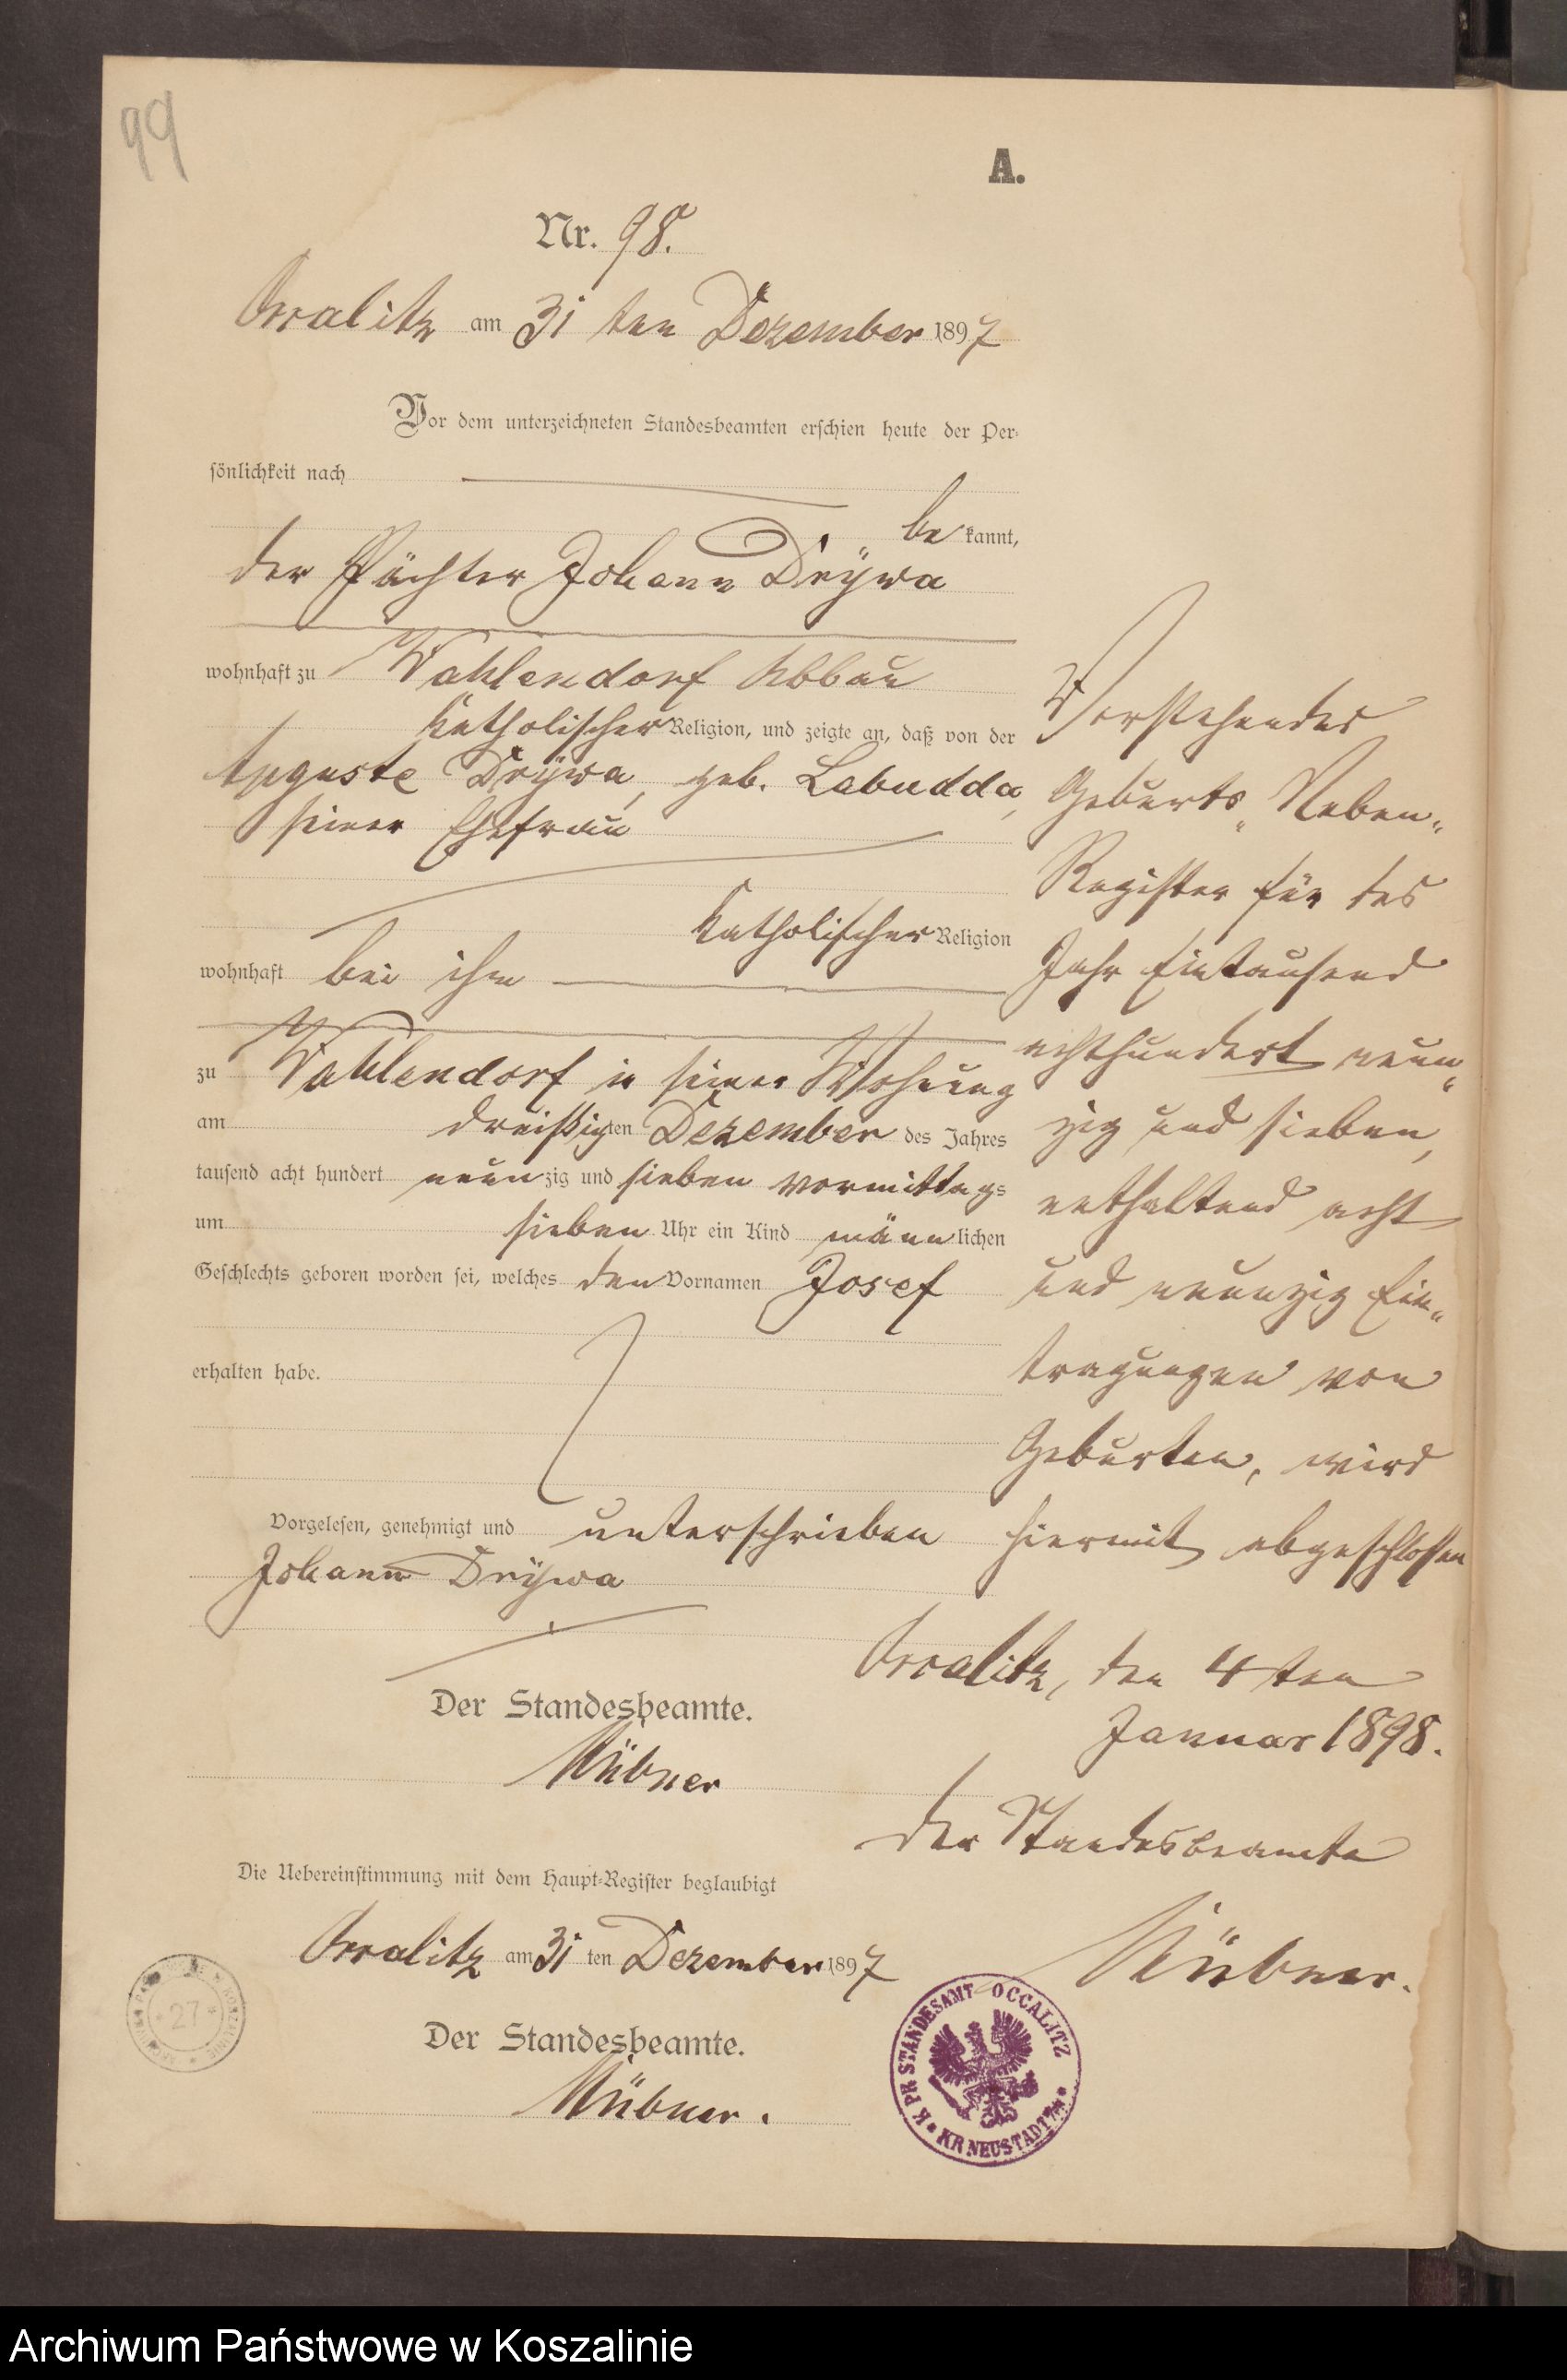 99
A.
Nr. 98.
Occalitz am 31 ten Dezember 1897
Vor dem unterzeichneten Standesbeamten erschien heute der Per-
sönlichkeit nach
be kannt,
der Pächter Johann Drÿwa
wohnhaft zu Wahlendorf Abbau
katholischer Religion, und zeigte an, daß von der
Auguste Drÿwa, geb. Labudda,
seiner Ehefrau
katholischer Religion
wohnhaft bei ihm
zu Wahlendorf in seiner Wohnung
am dreißigten Dezember des Jahres
tausend acht hundert neunzig und sieben vormittags
um sieben Uhr ein Kind männlichen
Geschlechts geboren worden sei, welches den Vornamen Josef
erhalten habe.
Vorgelesen, genehmigt und unterschrieben
Johann Drÿwa
Der Standesbeamte.
Kübner
Die Uebereinstimmung mit dem Haupt-Register beglaubigt
Occalitz am 31 ten Dezember 1897
Der Standesbeamte.
Kübner.
Vorstehendes
Geburts-Neben-
Register für das
Jahr Eintausend
achthundert neun-
zig und sieben,
enthaltend acht
und neunzig Ein-
tragungen von
Geburten, wird
hiermit abgeschlossen
Occalitz, den 4ten
Januar 1898.
Der Standesbeamte
Kübner.
K PR STANDESAMT OCCALITZ
* KR NEUSTADT W/PR *
27
Archiwum Państwowe w Koszalinie